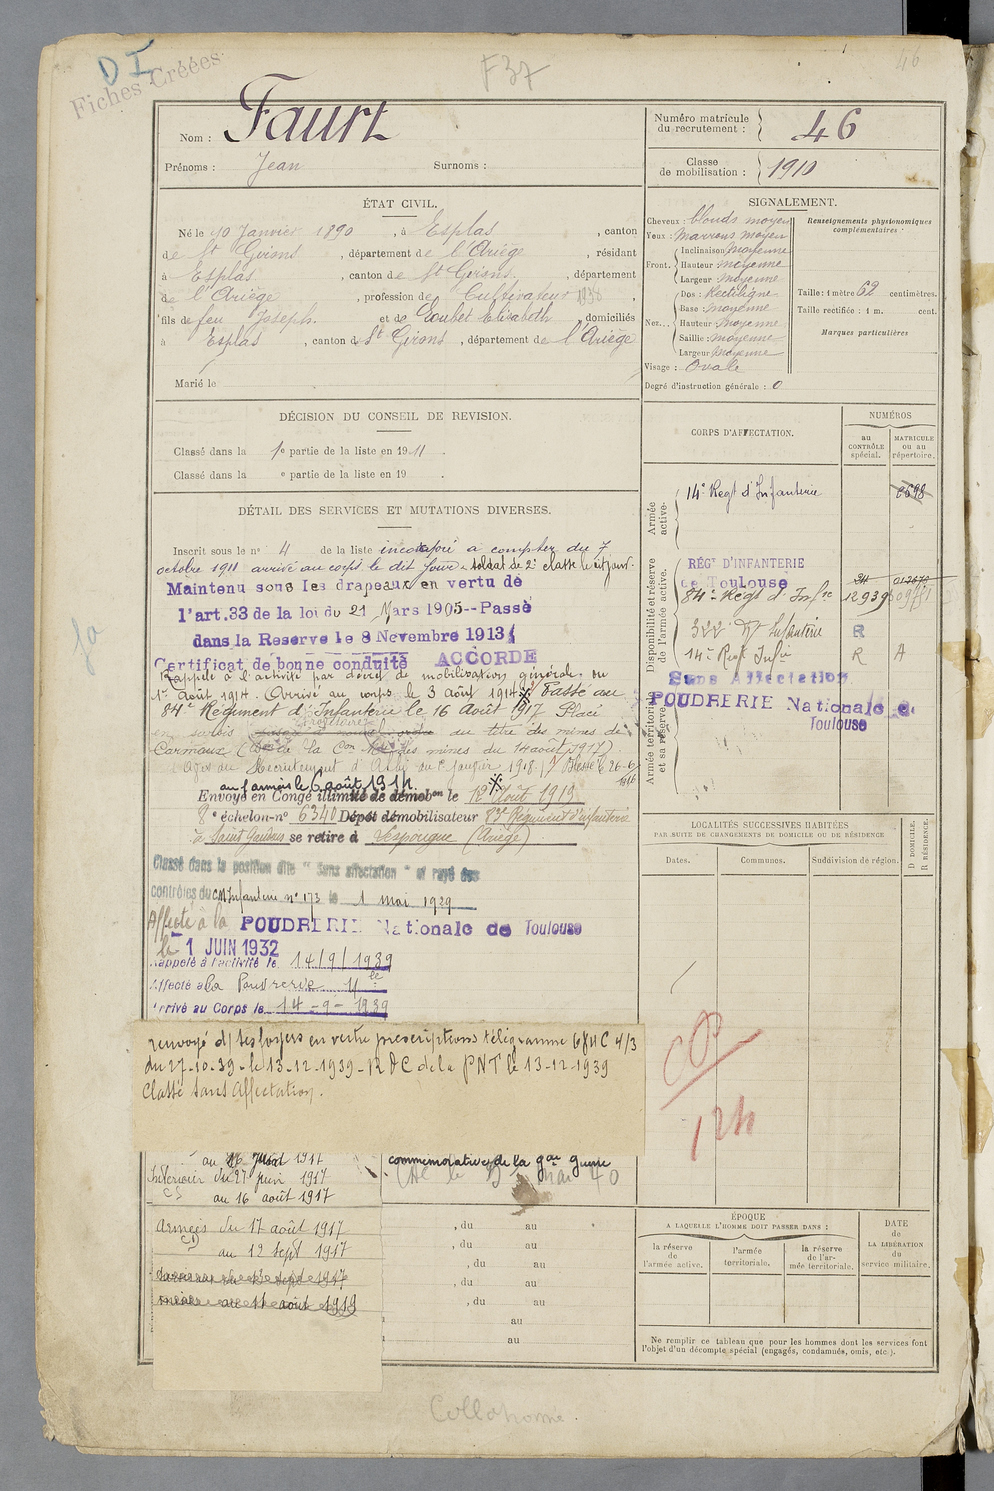 D I
Fiches Créées
F37
46
Nom : Faurt
Prénoms : Jean Surnoms :
Numéro matricule
du recrutement : 46
Classe
de mobilisation : 1910
ÉTAT CIVIL.
Né le 10 Janvier 1890 , à Esplas , canton
de St Girons , département de l'Ariège , résidant
à Esplas , canton de St Girons , département
de l'Ariège , profession de Cultivateur 1938 ,
fils de feu Joseph et de Loubet Elisabeth , domiciliés
à Esplas , canton de St Girons , département de l'Ariège
Marié le
SIGNALEMENT.
Cheveux : blonds moyen
Yeux : Marrons moyen
Front. Inclinaison Moyenne
Hauteur moyenne
Largeur moyenne
Nez... Dos : Rectiligne
Base : moyenne
Hauteur moyenne
Saillie : moyenne
Largeur moyenne
Visage : Ovale
Degré d'instruction générale : 0
Renseignements physionomiques
complémentaires :
Taille : 1 mètre 62 centimètres.
Taille rectifiée : 1 m. cent.
Marques particulières
DÉCISION DU CONSEIL DE REVISION.
Classé dans la 1e partie de la liste en 1911 .
Classé dans la e partie de la liste en 19 .
DÉTAIL DES SERVICES ET MUTATIONS DIVERSES.
Inscrit sous le n° 4 de la liste incorporé à compter du 7
octobre 1911 arrivé au corps le dit jour & soldat de 2e classe le dit jour.
Maintenu sous les drapeaux en vertu de
l'art.33 de la loi du 21 Mars 1905--Passé
dans la Reserve le 8 Novembre 1913
Certificat de bonne conduite ACCORDÉ
Rappelé à l'activité par décret de mobilisation générale du
1er Août 1914. Arrivé au corps le 3 août 1914. Passé au
84e Régiment d'Infanterie le 16 Août 1917 Placé
en sursis au titre des mines de
Carmaux ( de la Con des mines du 14 août 1917)
au Recrutement d'Albi au 1er janvier 1918. Blessé le 26-6
1916
aux armées le 6 août 1914.
Envoyé en Congé illimité de démobon le 12 Août 1919
8e échelon-n° 6340 Dépôt démobilisateur 83e Régiment d'infanterie
à Saint Gaudens se retire à Lespougue (Ariège)
Classé dans la position dite "Sans affectation" et rayé des
contrôles du CM Infanterie n° 173 le 1 mai 1929
Affecté à la POUDRERIE Nationale de Toulouse
le 1 JUIN 1932
Rappelé à l'activité le 14/9/1939
Affecté à la Poudrerie
Arrivé au Corps le 14-9-1939
renvoyé d/ses foyers en vertu prescriptions télégramme 684 C 4/3
du 27-10-39 - le 13-12-1939 - RDC de la PNT le 13-12-1939
Classé sans Affectation.
au
Intérieur du 27 juin 1917
CS au 16 août 1917
Armées du 17 août 1917
au 12 Sept 1917
commémorative de la gde guerre
CORPS D'AFFECTATION.
NUMÉROS
au
CONTRÔLE
spécial.
MATRICULE
ou au
répertoire.
Armée
active.
14e Regt d'Infanterie 6698
Disponibilité et réserve
de l'armée active.
RÉGt D'INFANTERIE
de Toulouse
84e Regt d'Infie 12939
322 Rt Infanterie R
14e Regt Infie R A
Armée territoriale
et sa réserve.
Sans Affectation
POUDRERIE Nationale de
Toulouse
LOCALITÉS SUCCESSIVES HABITÉES
PAR SUITE DE CHANGEMENTS DE DOMICILE OU DE RÉSIDENCE
Dates.
Communes.
Subdivision de région.
D DOMICILE.
R RÉSIDENCE.
, du au
, du au
, du au
, du au
, du au
au
au
ÉPOQUE
A LAQUELLE L'HOMME DOIT PASSER DANS :
la réserve
de
l'armée active.
l'armée
territoriale.
la réserve
de l'ar-
mée territoriale.
DATE
de
LA LIBÉRATION
du
service militaire.
Ne remplir ce tableau que pour les hommes dont les services font
l'objet d'un décompte spécial (engagés, condamnés, omis, etc.).